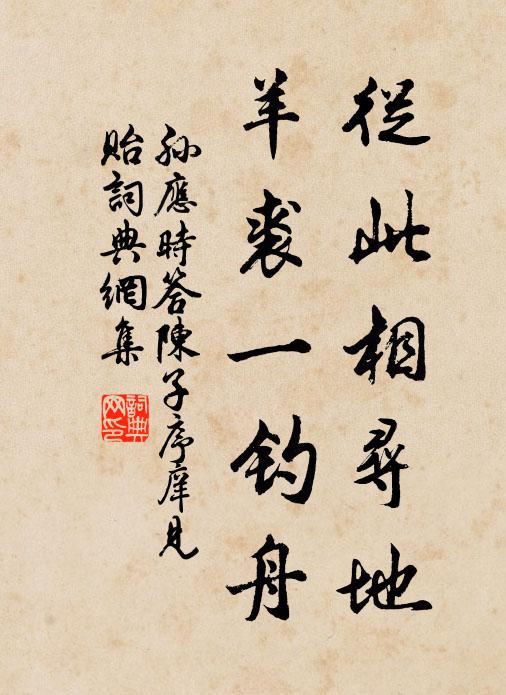 從此相尋地
羊裘一釣舟
孫應時答陳子序庠見
貽詞典網集
詞典
网印